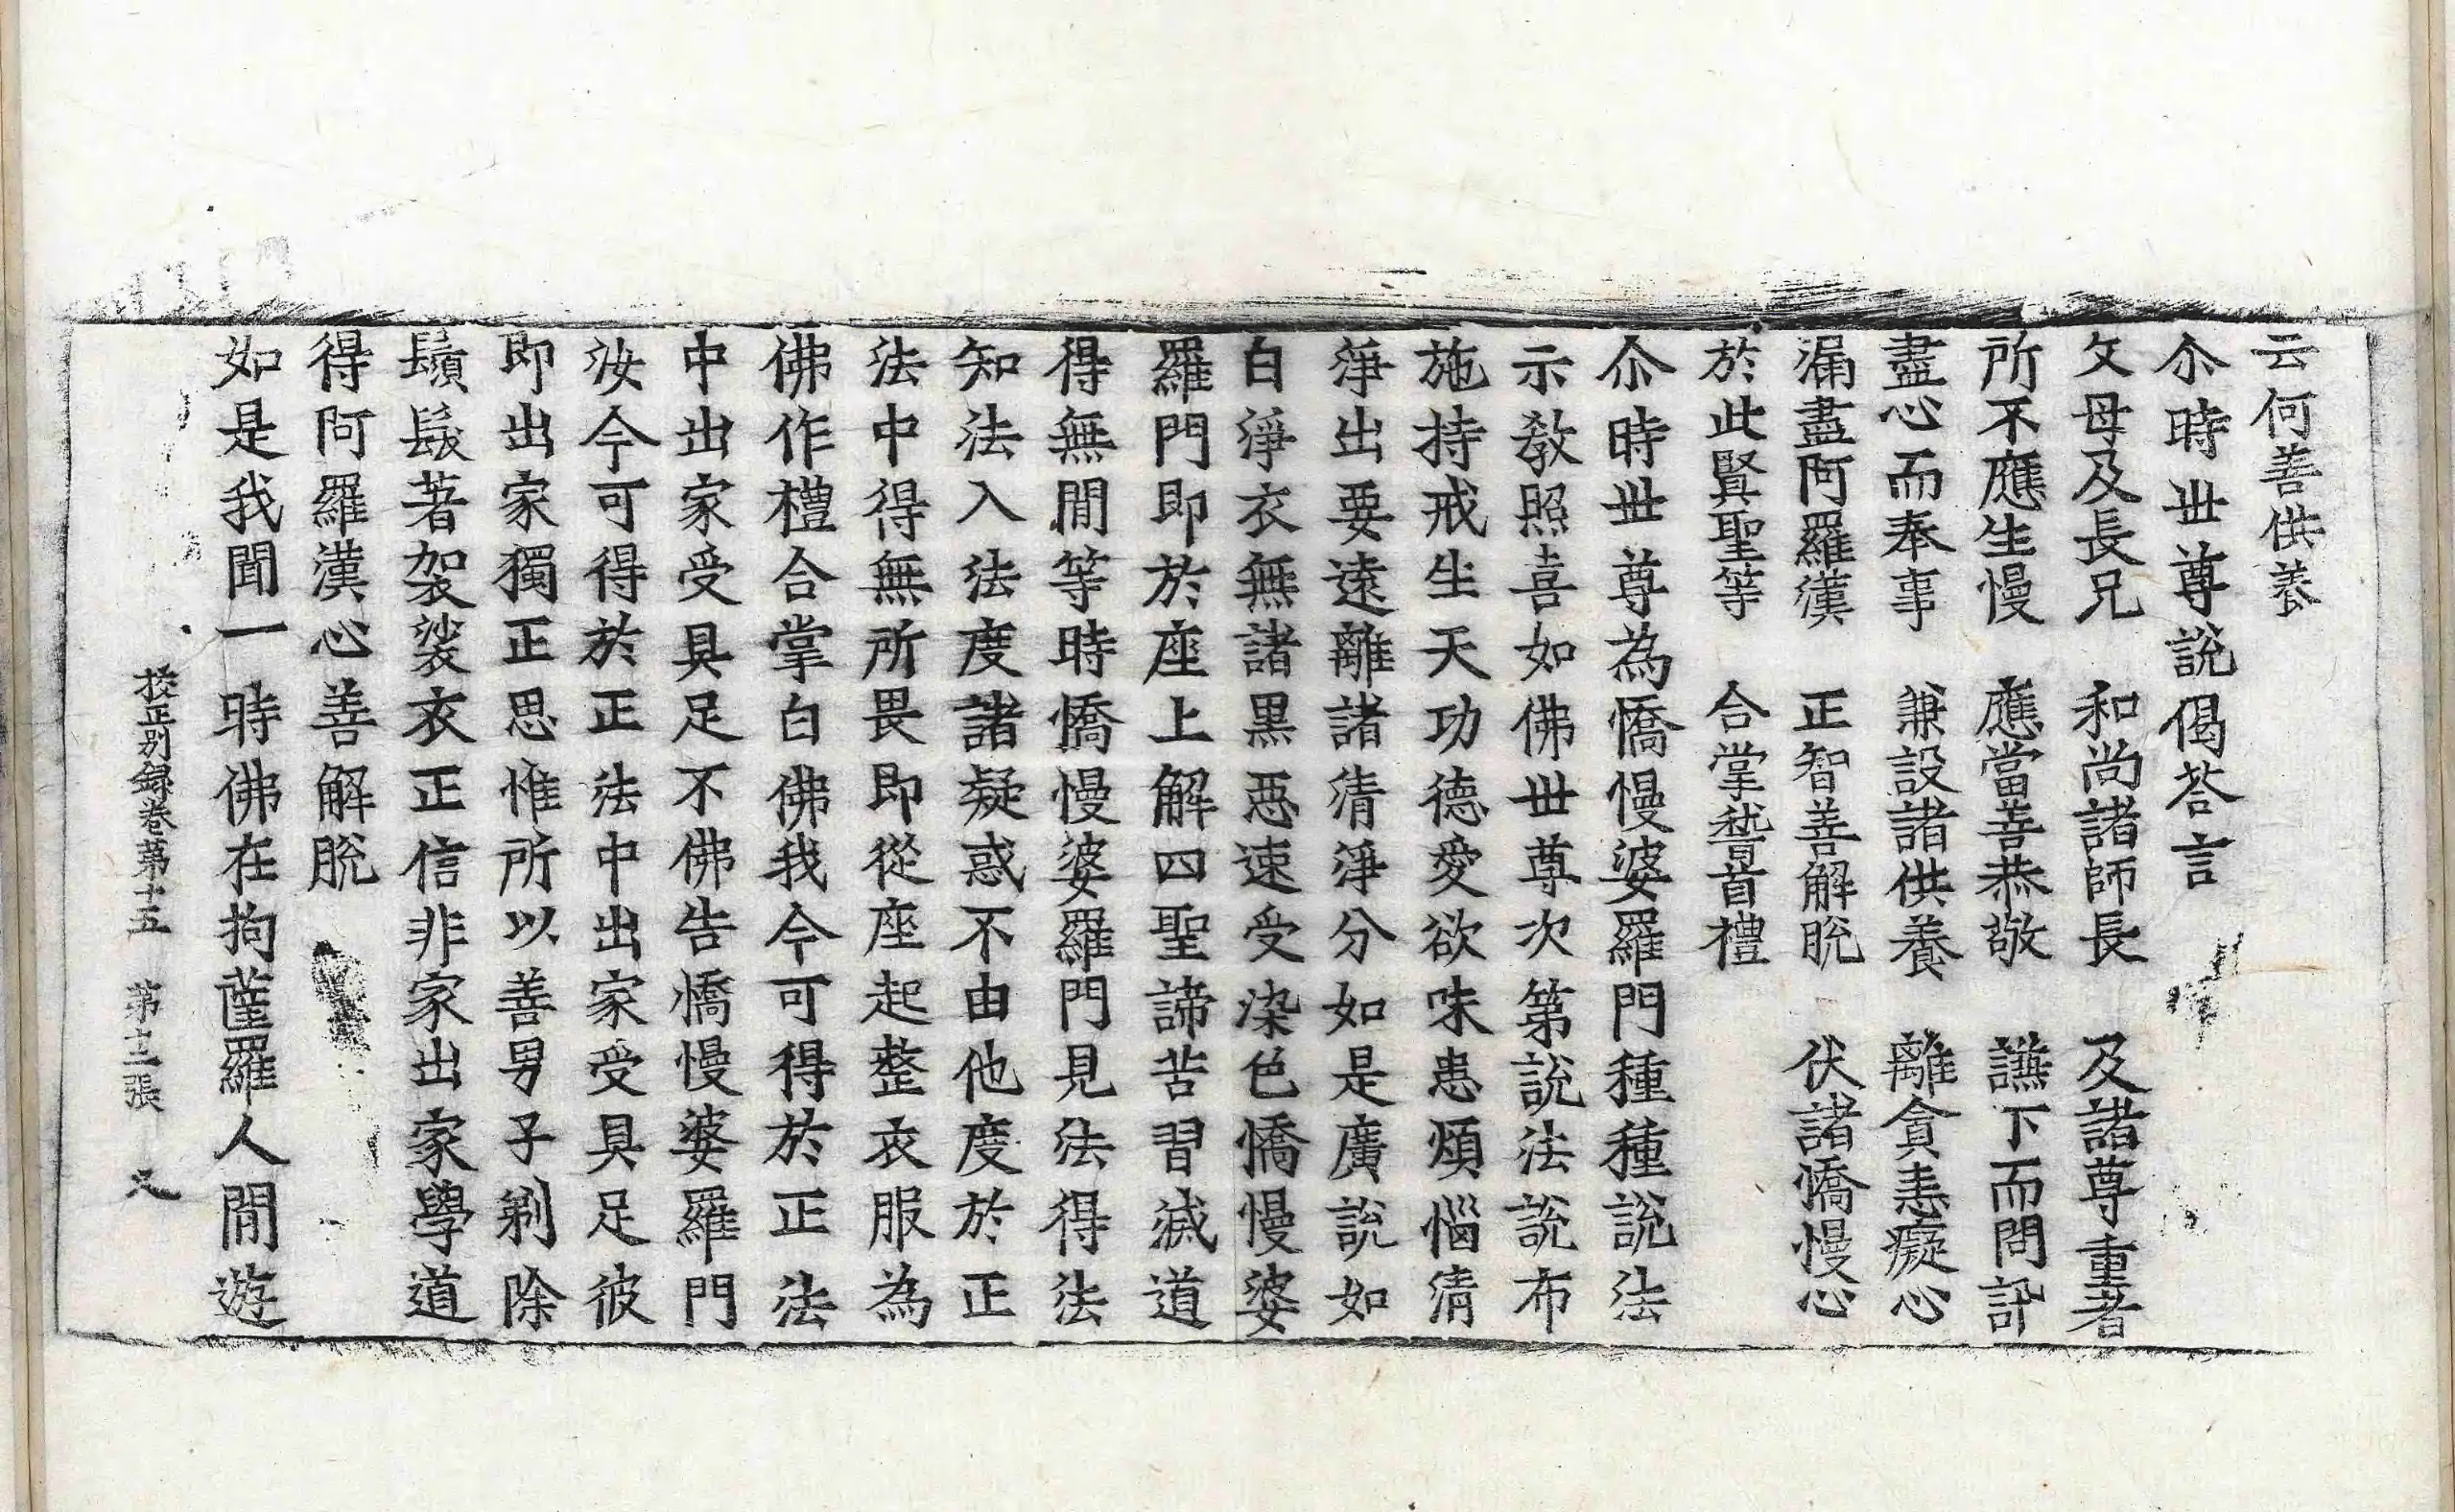 云何善供養
尒時世尊說偈荅言
父母及長兄　和尚諸師長　及諸尊重者
所不應生慢　應當善恭敬　謙下而問訊
盡心而奉事　兼設諸供養　離貪恚癡心
漏盡阿羅漢　正智善解脫　伏諸憍慢心
於此賢聖等　合掌稽首禮
尒時世尊為憍慢婆羅門種種說法
示教照喜如佛世尊次第說法說布
施持戒生天功德愛欲味患煩惱清
淨出要遠離諸清淨分如是廣說如
白淨衣無諸黑惡速受染色憍慢婆
羅門即於座上解四聖諦苦習滅道
得無閒等時憍慢婆羅門見法得法
知法入法度諸疑惑不由他度於正
法中得無所畏即從座起整衣服為
佛作禮合掌白佛我今可得於正法
中出家受具足不佛告憍慢婆羅門
汝今可得於正法中出家受具足彼
即出家獨正思惟所以善男子剃除
鬚髮著袈裟衣正信非家出家學道
得阿羅漢心善解脫
如是我聞一時佛在拘薩羅人閒遊
校正別録卷第十五　第十二張